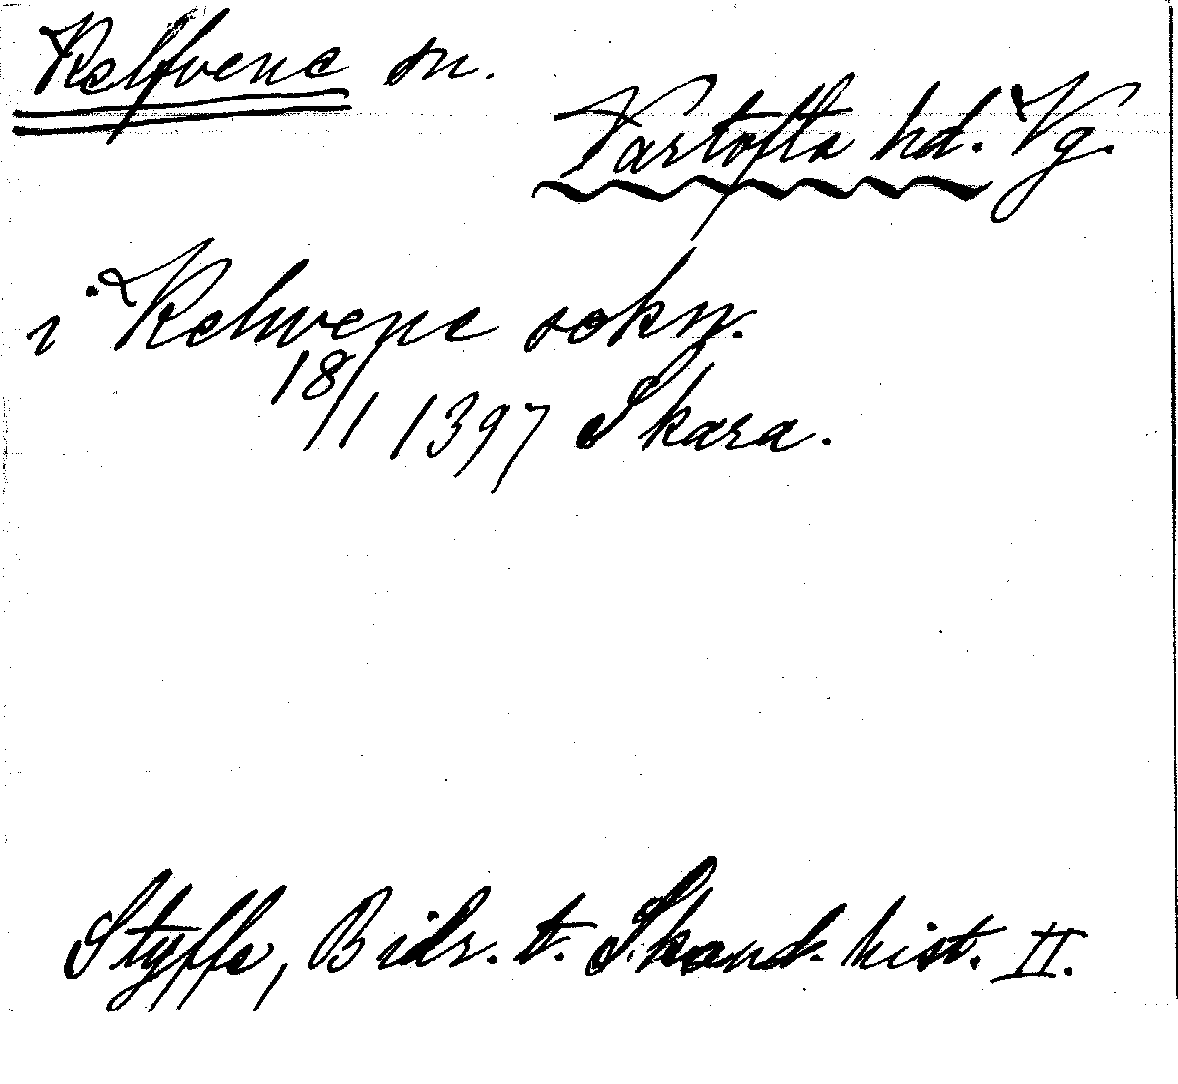 Kelfvene sn.
Vartofta hd. Vg.
i Kelwene sokn.
18/1 1397 Skara.
Styffe, Bidr. t. Skand. hist. II.